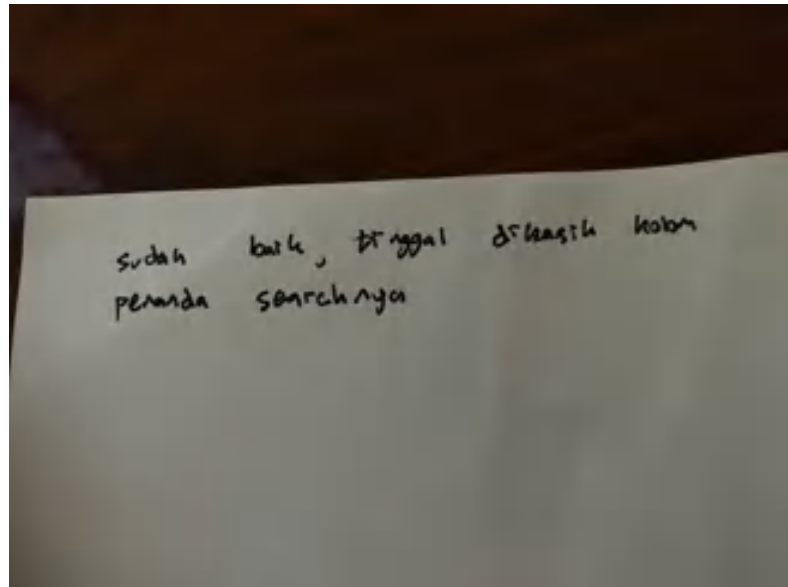 sudah baik, tinggal dikasih kolom
penanda searchnya